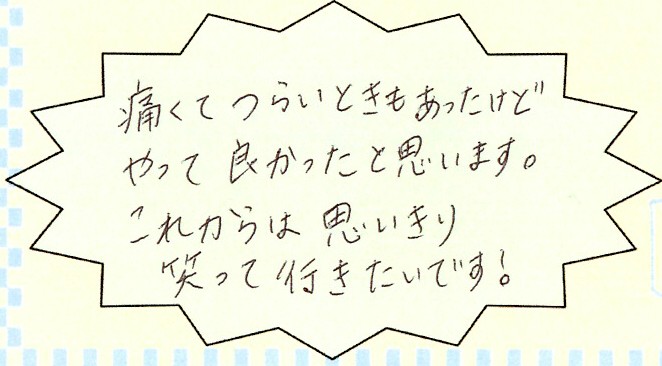 痛くてつらいときもあったけど
やって良かったと思います。
これからは思いきり
笑って行きたいです!